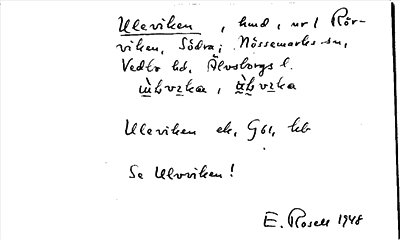 Uleviken, hmd, nr 1 Rör-
viken, Södra; Nössemarks sn,
Vedbo hd, Älvsborgs l.
Uleviken ek, G61, hb
Se Ulvviken!
E. Rosell 1948